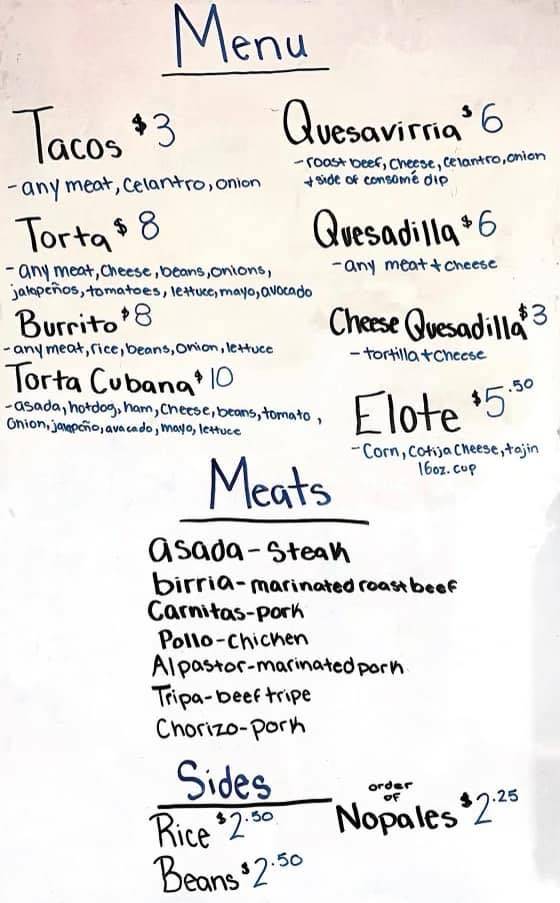 Menu
Tacos $3
-any meat, celantro, onion
Torta $8
-any meat, cheese, beans, onions,
jalapeños, tomatoes, lettuce, mayo, avocado
Burrito $8
-any meat, rice, beans, onion, lettuce
Torta Cubana $10
-asada, hotdog, ham, cheese, beans, tomato,
Onion, jalapeño, avacado, mayo, lettuce
Quesavirria $6
-roast beef, cheese, celantro, onion
+side of consomé dip
Quesadilla $6
-any meat + cheese
Cheese Quesadilla $3
-tortilla + cheese
Elote $5.50
-Corn, cotija cheese, tajin
16oz. cup
Meats
asada-Steak
birria-marinated roast beef
Carnitas-pork
Pollo-chicken
Al pastor-marinated pork
Tripa-beef tripe
Chorizo-pork
Sides
Rice $2.50
Beans $2.50
order
of
Nopales $2.25